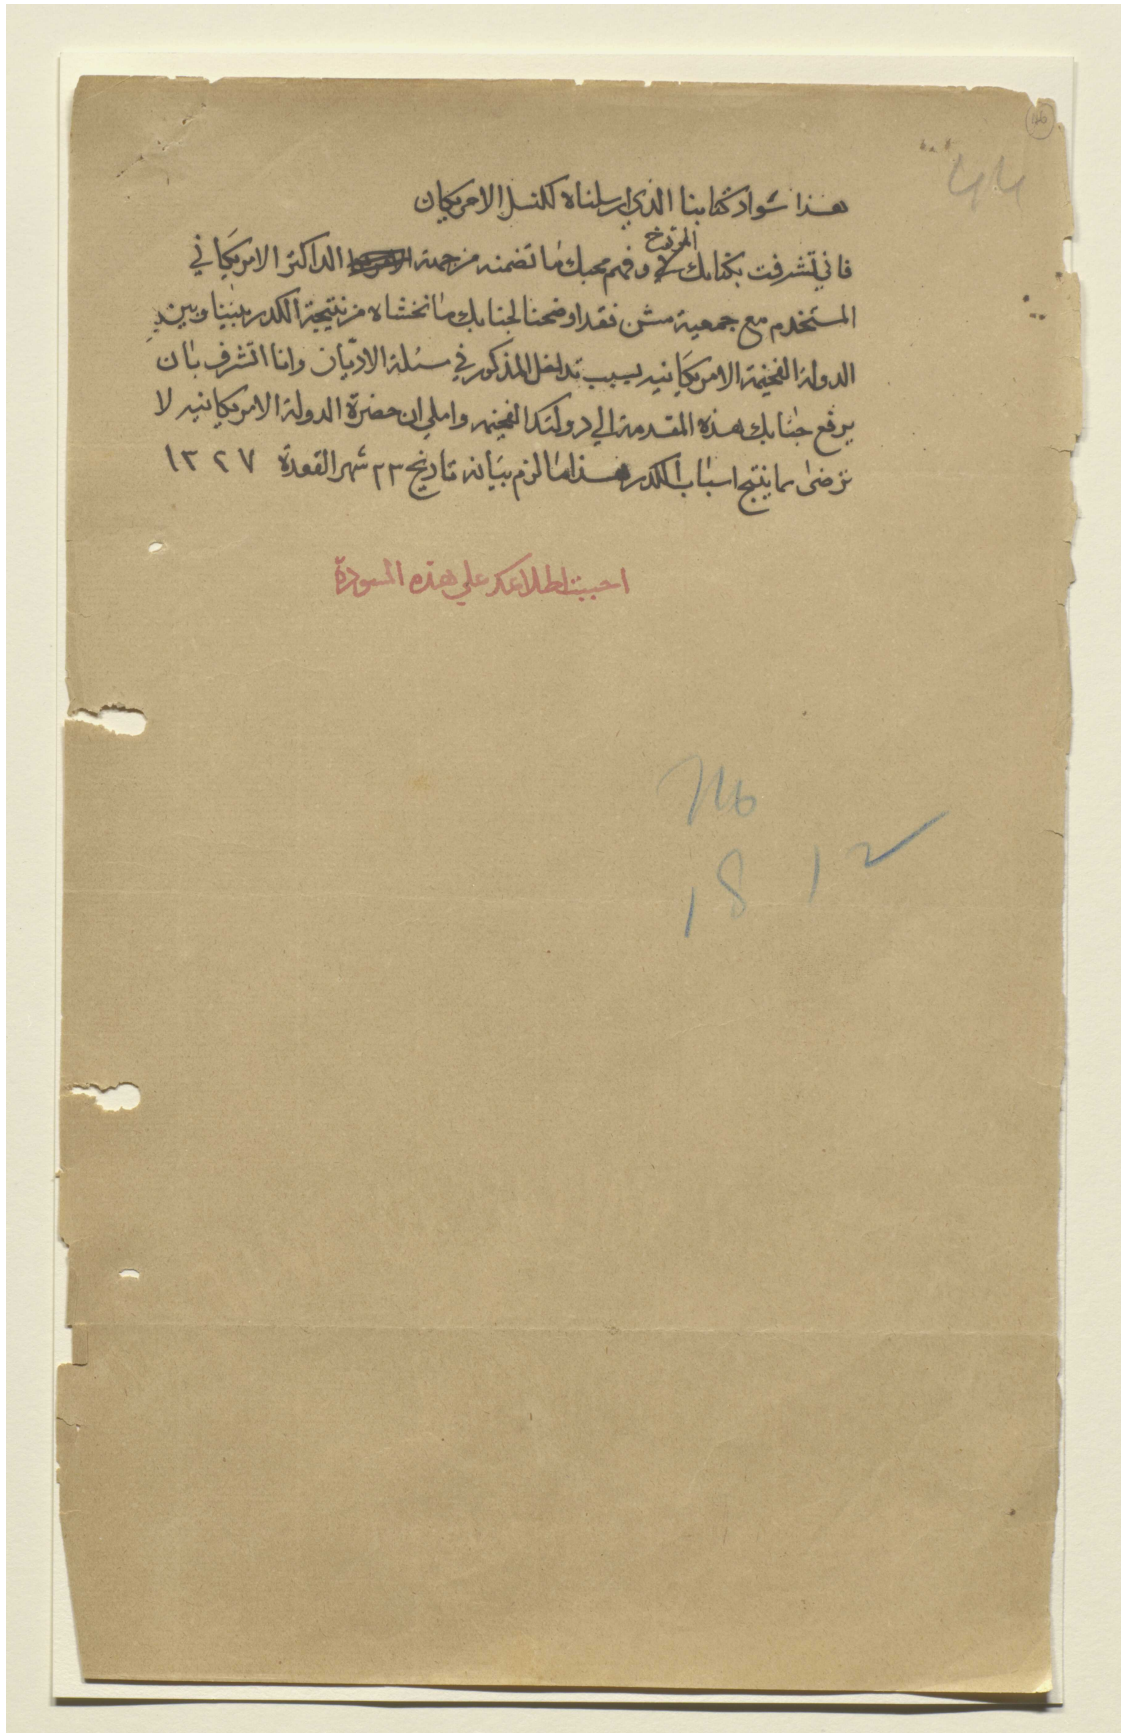 46
44
هذا سواد كتابنا الذي ارسلناه لكنسل الامريكان
المورخ
فاني تشرفت بكتابك وفهم محبك ما تضمنه من جهة الداكتر الامريكاني
المستخدم مع جمعية مشن فقد اوضحنا لجنابك ما نخشاه من نتيجة الكدر بيننا وبين
الدولة الفخيمة الامريكانيه بسبب تداخل المذكور في مسئلة الاديان وانا اتشرف بان
يرفع جنابك هذه المقدمة الي دولتكم الفخيمه واملي ان حضرة الدولة الامريكانيه لا
ترضى بما ينتج اسباب الكدر هذا ما لزم بيانه تاريخ ٢٣ شهر القعدة ١٣٢٧
احببت اطلاعكم علي هذه المسودة
18 12